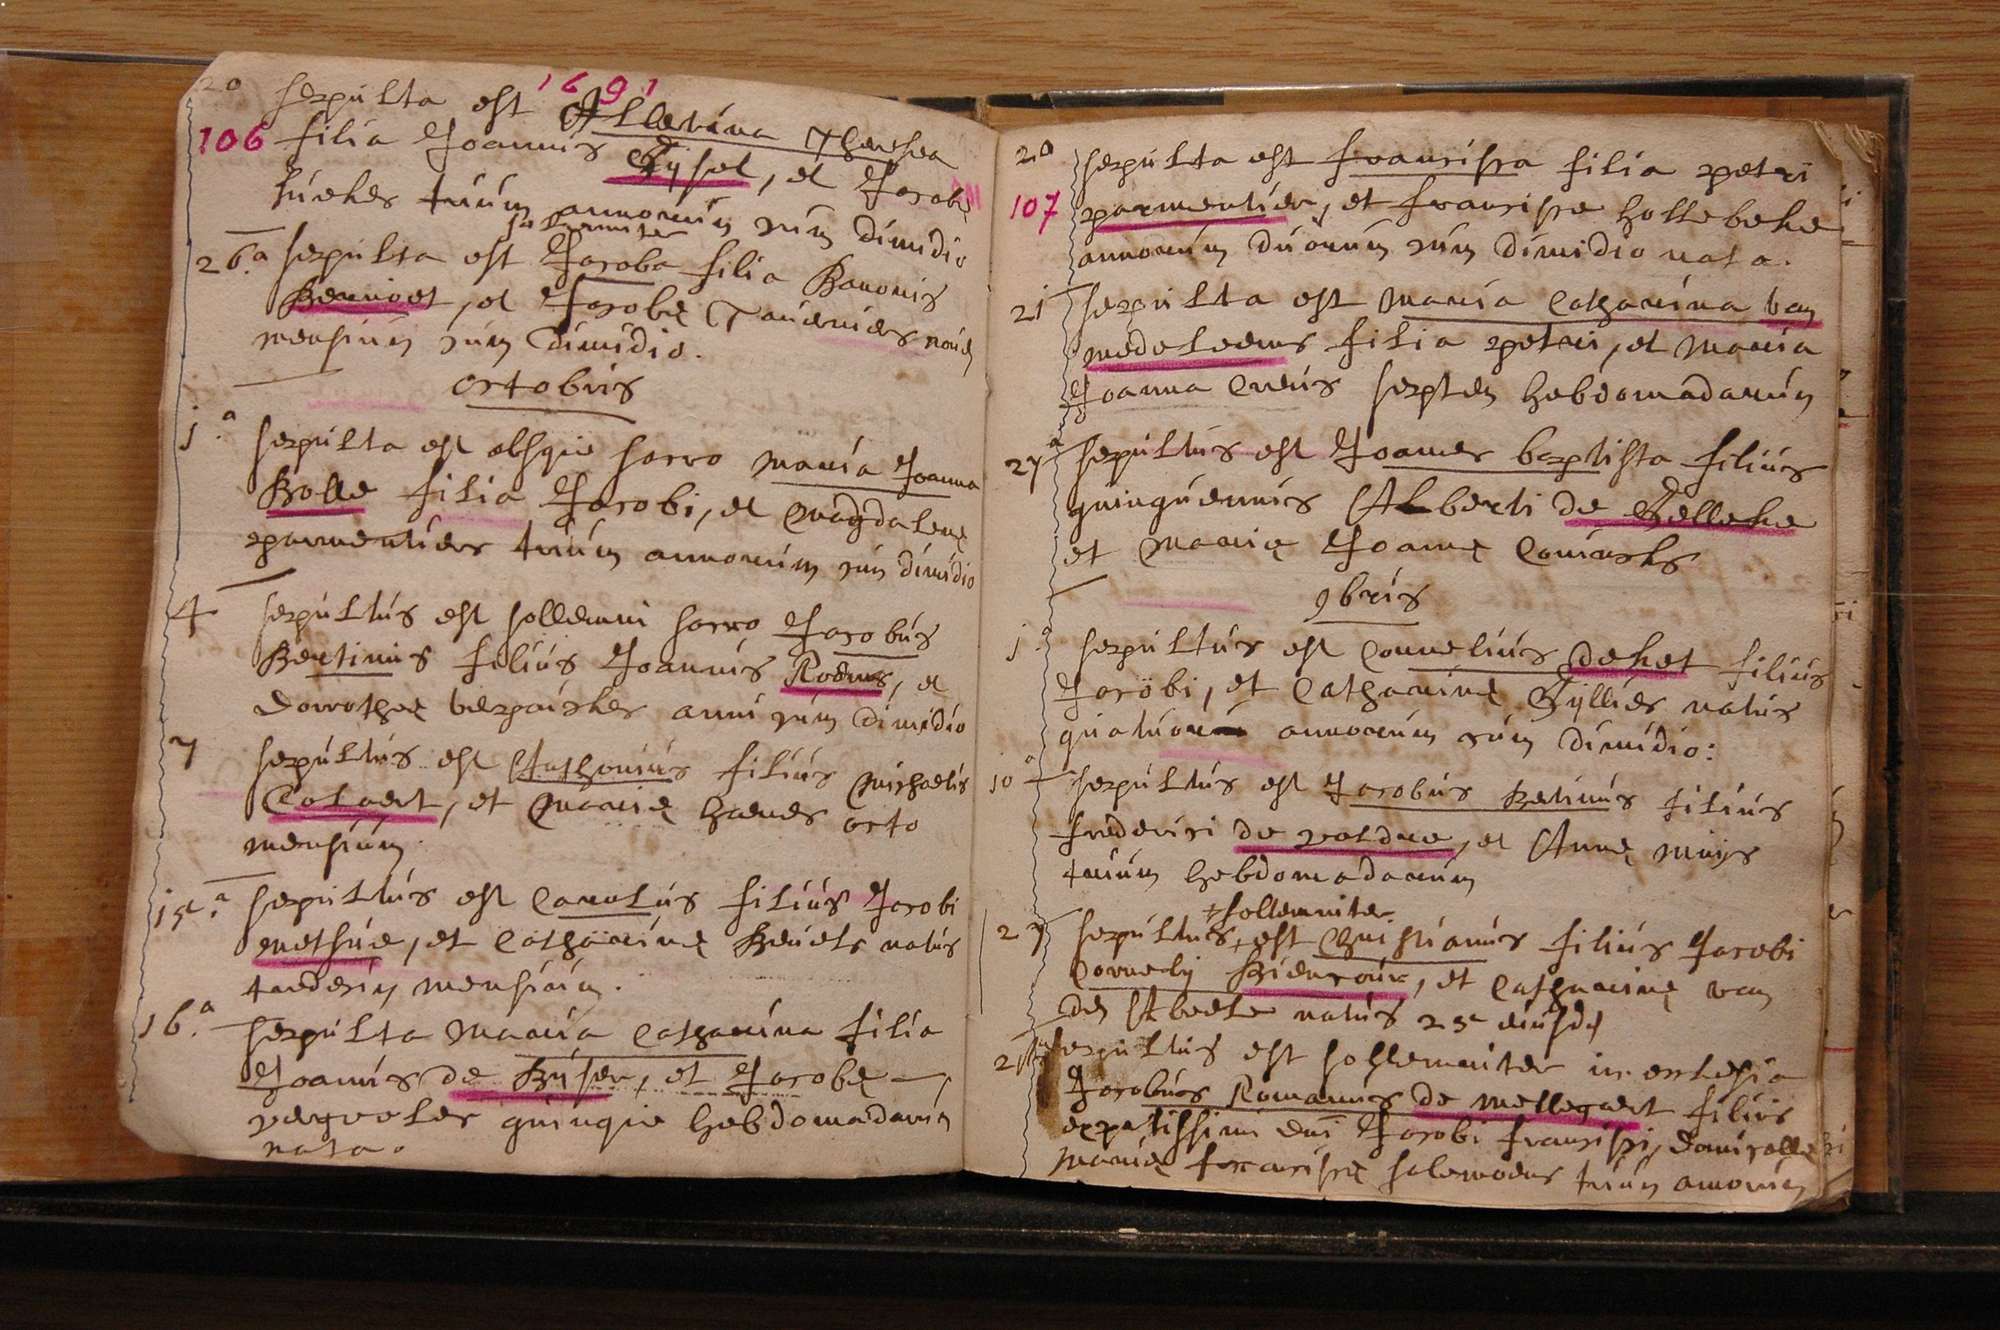 1691
20 sepulta est Albertina Theresia
106 filia Joannis Gÿsel, et Jacobę
huehes trium annorum cum dimidio
solemniter
26.a sepulta est Jacoba filia Bauonis
Bennoet, et Jacobę Tauerniers nouę
mensium cum dimidio.
octobris
j.a sepulta est absque sacro maria Joanna
Bolle filia Jacobi, et magdalenę
parmentiers trium annorum cum dimidio
4 sepultus est sollemni sacro Jacobus
Bertinus filius Joannis Roens, et
dorotheę verpoucke anni cum dimidio
7 sepultus est Anthonius filius michaelis
Colaert, et marię haenes octo
mensium.
15.a sepultus est Carolus filius Jacobi
methue, et Catharinę Beuels natus
tredecim mensium.
16.a sepulta maria Catharina filia
Joannis de Buser, et Jacobę
vergoeles quinque hebdomadarum
nata.
20 sepulta est francisca filia petri
107 parmentier, et francisce hollebeke
annorum duorum cum dimidio nata.
21 sepulta est maria Catharina van
medeleens filia petri, et maria
Joanna Creus septem hebdomadarum
27a sepultus est Joannes baptista filius
quinquennis Alberti de Gelleke
et marię Joannę Coninchs
9bris
j.a sepultus est Cornelius deket filius
Jacobi, et Catharinę Gÿllies natus
quatuor annorum cum dimidio:
10a sepultus est Jacobus Betinus filius
frederici de voldre, et Annę muijs
trium hebdomadarum
+ sollemniter
27 sepultus + est Christianus filius Jacobi
Cornelij Biencour, et Catharinę van
den Abeele natus 25a eiusdę
sepultus est sollemniter in ecclesia
Jacobus Romanus de mellegaert filius
expertissimi dni Jacobi francisci, domicellę
marię franciscę salemoens trium annorum